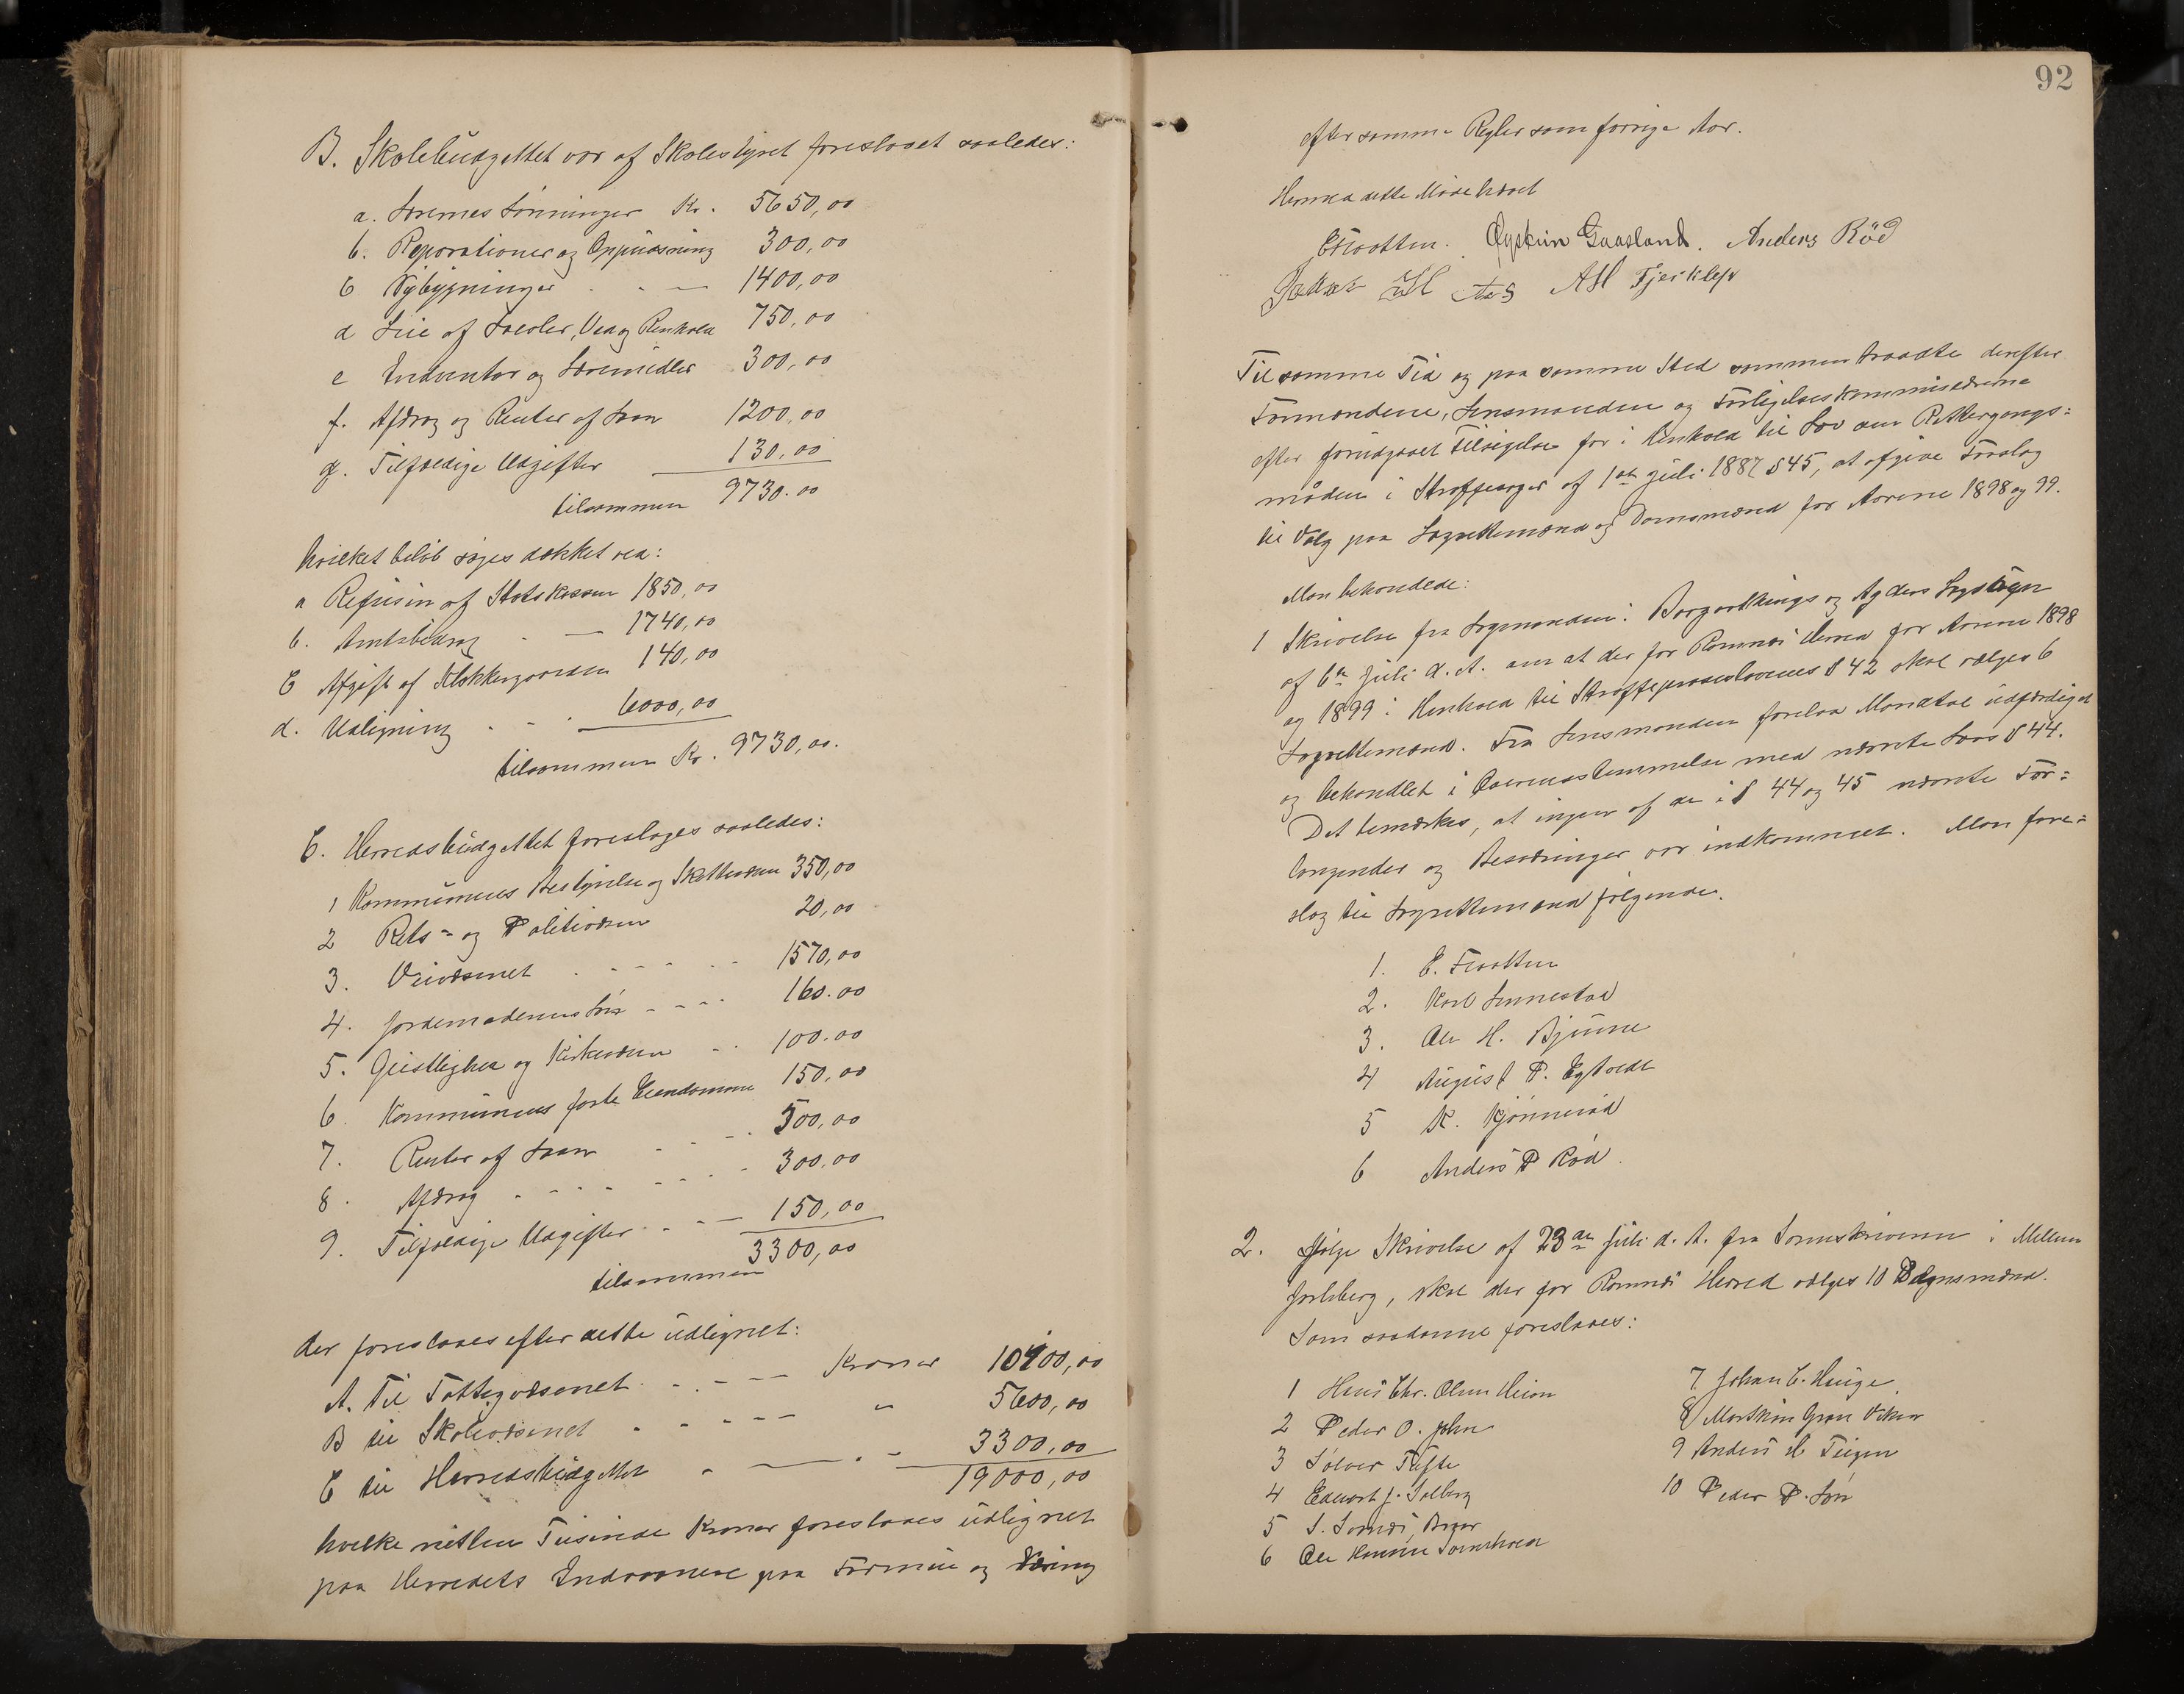 B. Skolebudgettet var af Skolestyret foreslaaet saaledes:
a. Lærernes Lønninger Kr. 5650,00
b. Reparationer og Oppudsning 300,00
C Nybygninger - - 1400,00
d Leie af Lokaler, Ved og Renhold 750,00
e Indventar og Læremidler 300,00
f. Afdrag og Renter af Laan 1200,00
g. Tilfældige Udgifter 130,00
tilsammen 9730.00
hvilket beløb søges dækket ved:
a Refusion af Statskassen 1850,00
b. Amtsbidrag - - 1740,00
C Afgift af Klokkergaarden 140,00
d. Udligning - - 6000,00
tilsammen Kr. 9730,00.
C. Herredsbudgettet foreslages saaledes:
1 Kommunens Bestyrelse og Skattevæsen 350,00
2 Rets- og Politivæsen 20,00
3. Veivæsenet - - - - 1570,00
4. Jordemodernes Løn - - - - 160.00
5. Geistlighed og Kirkevæsen - - 100.00
6. Kommunens faste Eiendomme 150,00
7. Renter af Laan - - - 500,00
8. Afdrag - - - - - - - 300,00
9. Tilfældige Udgifter - - - 150,00
tilsammen 3300,00
der foreslaaes efter dette udlignet:
A. Til Fattigvæsenet - - - - Kroner 10100,00
B til Skolevæsenet - - - - - " 5600,00
C til Herredsbudgettet - - - - 3300,00
19000,00
hvilke nitten Tusinde Kroner foreslaaes udlignet
paa Herredets Indvaanere paa Formue og Næring
92
efter samme Regler som forrige Aar.
Hermed dette Møde hævet
E Flaatten. Øystein Gaasland. Anders Röd
AH Fjerklep
Til samme Tid og paa samme Sted sammentraadte derefter
Formændene, Lensmanden og Forligelseskommissærerne
efter forudgaaet Tilsigelse for i Henhold til Lov om Rettergangs=
maaden i Straffesager af 1ste Juli 1887 § 45, at afgive Forslag
til Valg paa Lagrettemænd og Domsmænd for Aarene 1898 og 99.
Man behandlede:
1 Skrivelse fra Lagmanden i Borgarthings og Agders Lagsogn
af 6te Juli d. A. om at der for Ramnæs Herred for Aarene 1898
og 1899 i Henhold til Straffeproceslovens § 42 skal vælges 6
Lagrettemænd. Fra Lensmanden forelaa Mandtal udfærdiget
og behandlet i Overensstemmelse med nævnte Lovs § 44.
Det bemærkes, at ingen af de i § 44 og 45 nævnte For=
langender og Besværinger var indkommet. Man fore=
slog til Lagrettemænd følgende.
1. E. Flaatten
2. Karl Linnestad
3. Ole H. Bjune
4 August P. Egtvedt
5 K. Kjønnerød
6 Anders P Rød.
2. Ifølge Skrivelse af 23de Juli d. A. fra Sorenskriveren i Mellem
Jarlsberg, skal der for Ramnæs Herred vælges 10 Domsmænd.
Som saadanne foreslaaes:
1 Hans Chr. Olsen Heian
2 Peder O. John
3 Sølver Tufte
4 Edvart J. Solberg
5 S. Bruer
6 Ole
7 Johan C. Hauge.
8 Marthin Gran
9 Anders H Teigen
10 Peder P. Løn